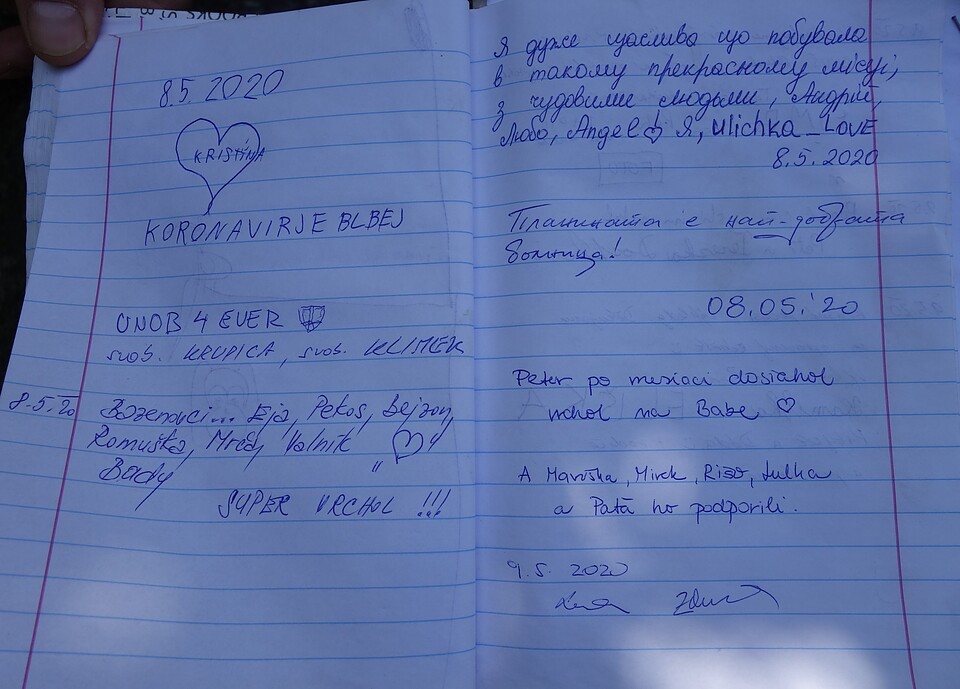 8.5. 2020
KRISTÍNA
KORONAVIRJE BLBEJ
UNOB 4 EVER
svob. KRUPICA, svob. KLIMEK
8.5.20
Bozemuci... Eja, Pekos, Bejzon,
Romuška, Mrády, Valnik
Bady
SUPER VRCHOL !!!
Я дуже щаслива що побувала
в такому прекрасному місці,
з чудовими людьми, Андрій,
Любо, Angel Я, ulichka_LOVE
8.5.2020
Планината е най-добрата
болница!
08.05.'20
Peter po mesiaci dosiahol
vrchol na Babe
A Maruška, Mirek, Rišo, Lulka
a Pata ho podporili.
9.5. 2020